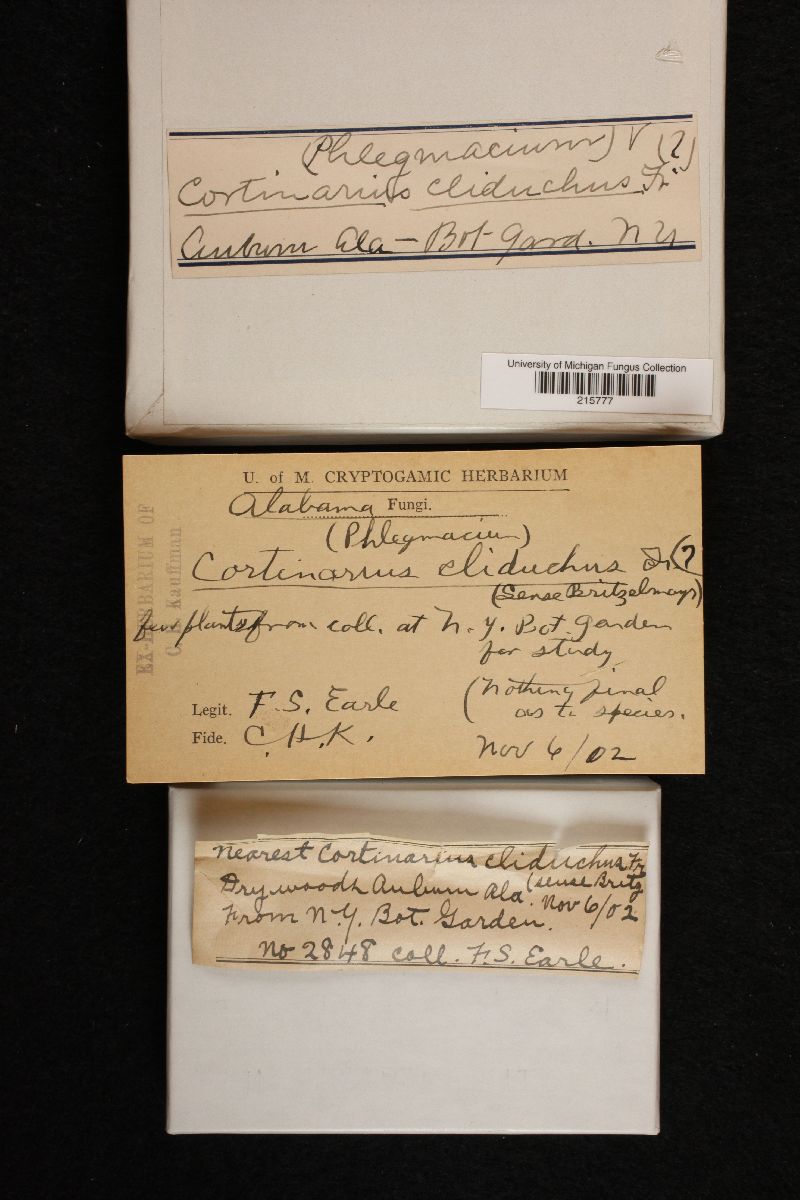 (Phlegmacium) V (?)
Cortinarius cliduchus Fr.
Auburn Ala — Bot Gard. N Y
University of Michigan Fungus Collection
215777
U. of M. CRYPTOGAMIC HERBARIUM
Alabama Fungi.
(Phlegmacium)
Cortinarius cliduchus Fr. (?
(Sense Britzelmayr)
few plants from coll. at N. Y. Bot Garden
for study
(Nothing final
as to species.
Legit. F. S. Earle
Fide. C. H. K.
Nov 6/02
EX-HERBARIUM OF
C. H. Kauffman
Nearest Cortinarius cliduchus Fr
(sense Britz
Dry woods Auburn Ala. Nov 6/02
From N.Y. Bot. Garden.
No 2848 coll. F.S. Earle.